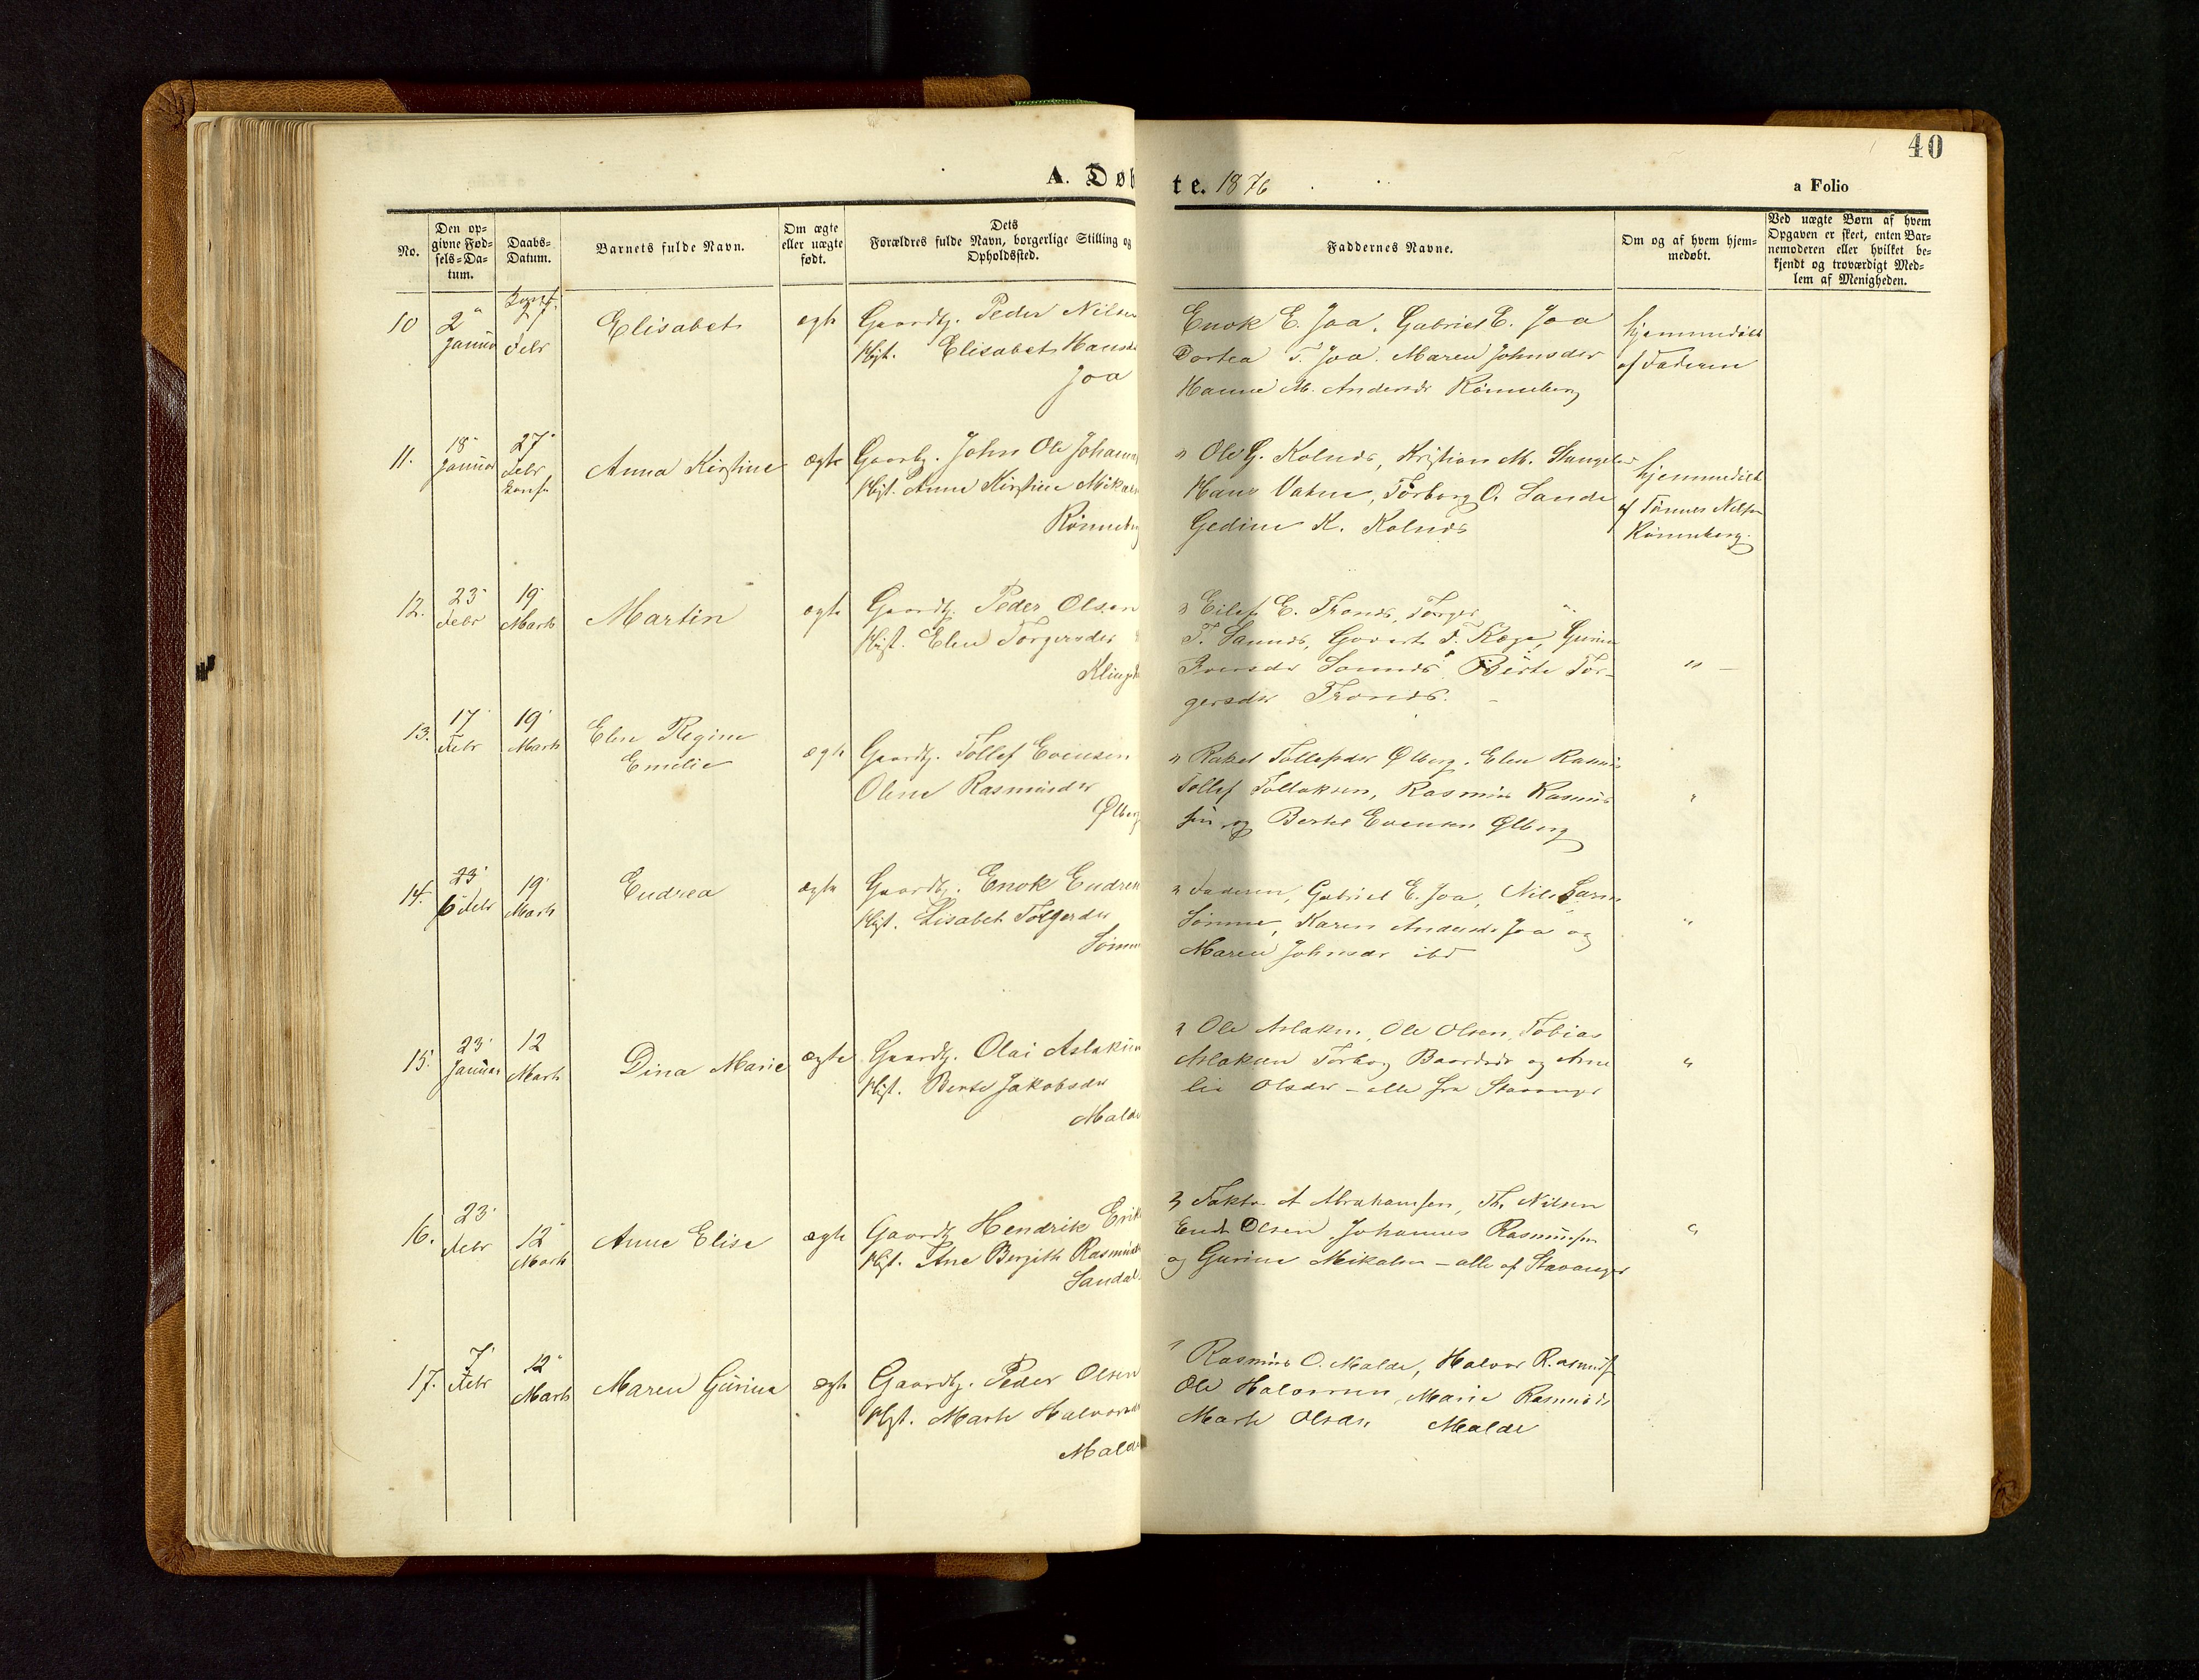 40
A. Døb
te. 1876
a Folio
No.
Den op-
givne Fød-
sels-Da-
tum.
Daabs-
Datum.
Barnets fulde Navn.
Om ægte
eller uægte
født.
Dets
Forældres fulde Navn, borgerlige Stilling og
Opholdssted.
Faddernes Navne.
Om og af hvem hjem-
medøbt.
Ved uægte Børn af hvem
Opgaven er skeet, enten Bar-
nemoderen eller hvilket be-
kjendt og troværdigt Med-
lem af Menigheden.
10
2
Januar
27
Febr
Elisabet
ægte
Gaardb. Peder Nilsen
Elisabet Hansd
Joa
Enok E. Joa, Gabriel E. Joa
Dortea T. Joa. Maren Johnsdr
Hanne M. Andersdr Rönneberg
hjemmedöbt
af Faderen
11.
18
Januar
27
Febr
Konf
Anna Kirstine
ægte
Gaardb. John Ole Johann
Anne Kirstine Mika
Rönneberg
Ole G. Kolnes, Kristian M. Stangeland
Hans Vatne, Törborg O. Sande
Gedine K. Kolnes
hjemmedöbt
af Tönnes Nelsen
Rönneberg.
12.
23
Febr
19
Marts
Martin
ægte
Gaardb. Peder Olsen
Elen Torgersdr
Eilef E. Tronds, Torger
T. Sømnes, Govert T. Kege, Gurine
Sømnes Berte Tor-
gersdr Tronds.
" —
13.
17
Febr
19
Marts
Elen Regine
Emelie
ægte
Gaardb. Tollef Evensen
Olene Rasmusdr
Ølberg
Rakel Tollefsdr Ølberg, Elen Rasmus
Tollef Tollaksen, Rasmus Rasmus
sen og Bertel Evensen Ølberg
"
14.
23
Febr
19
Marts
Endrea
ægte
Gaardb. Enok Endresen
Lisabet Tolgersdr
Sömme
Faderen, Gabriel E. Joa, Nils Lars
Sömme, Karen Andersd. Joa og
Maren Johnsdr ibd
"
15.
23
Januar
12
Marts
Dina Marie
ægte
Gaardb. Olai Aslaksen
Berte Jakobsdr
Malde
Ole Aslaksen, Ole Olsen, Tobias
Aslaksen Torborg Baardsdr og Ame
lie Olsdr - alle fra Stavanger
"
16.
23
Febr
12
Marts
Anne Elise
ægte
Gaardb Hendrik Erik
Ane Berjith Rasmusdr
Sandal
Faktor A Abrahamsen, Th. Nilsen
Endr Olsen Johannes Rasmussen
og Gurine Mikalsen - alle af Stavanger
"
17.
7
Febr
12
Marts
Maren Gurine
ægte
Gaardb. Peder Olsen
Marte Halvorsdr
Malde
Rasmus O. Malde, Halvor Rasmuss
Ole Halvorsen, Marie Rasmusdr
Marte Olsdr Malde